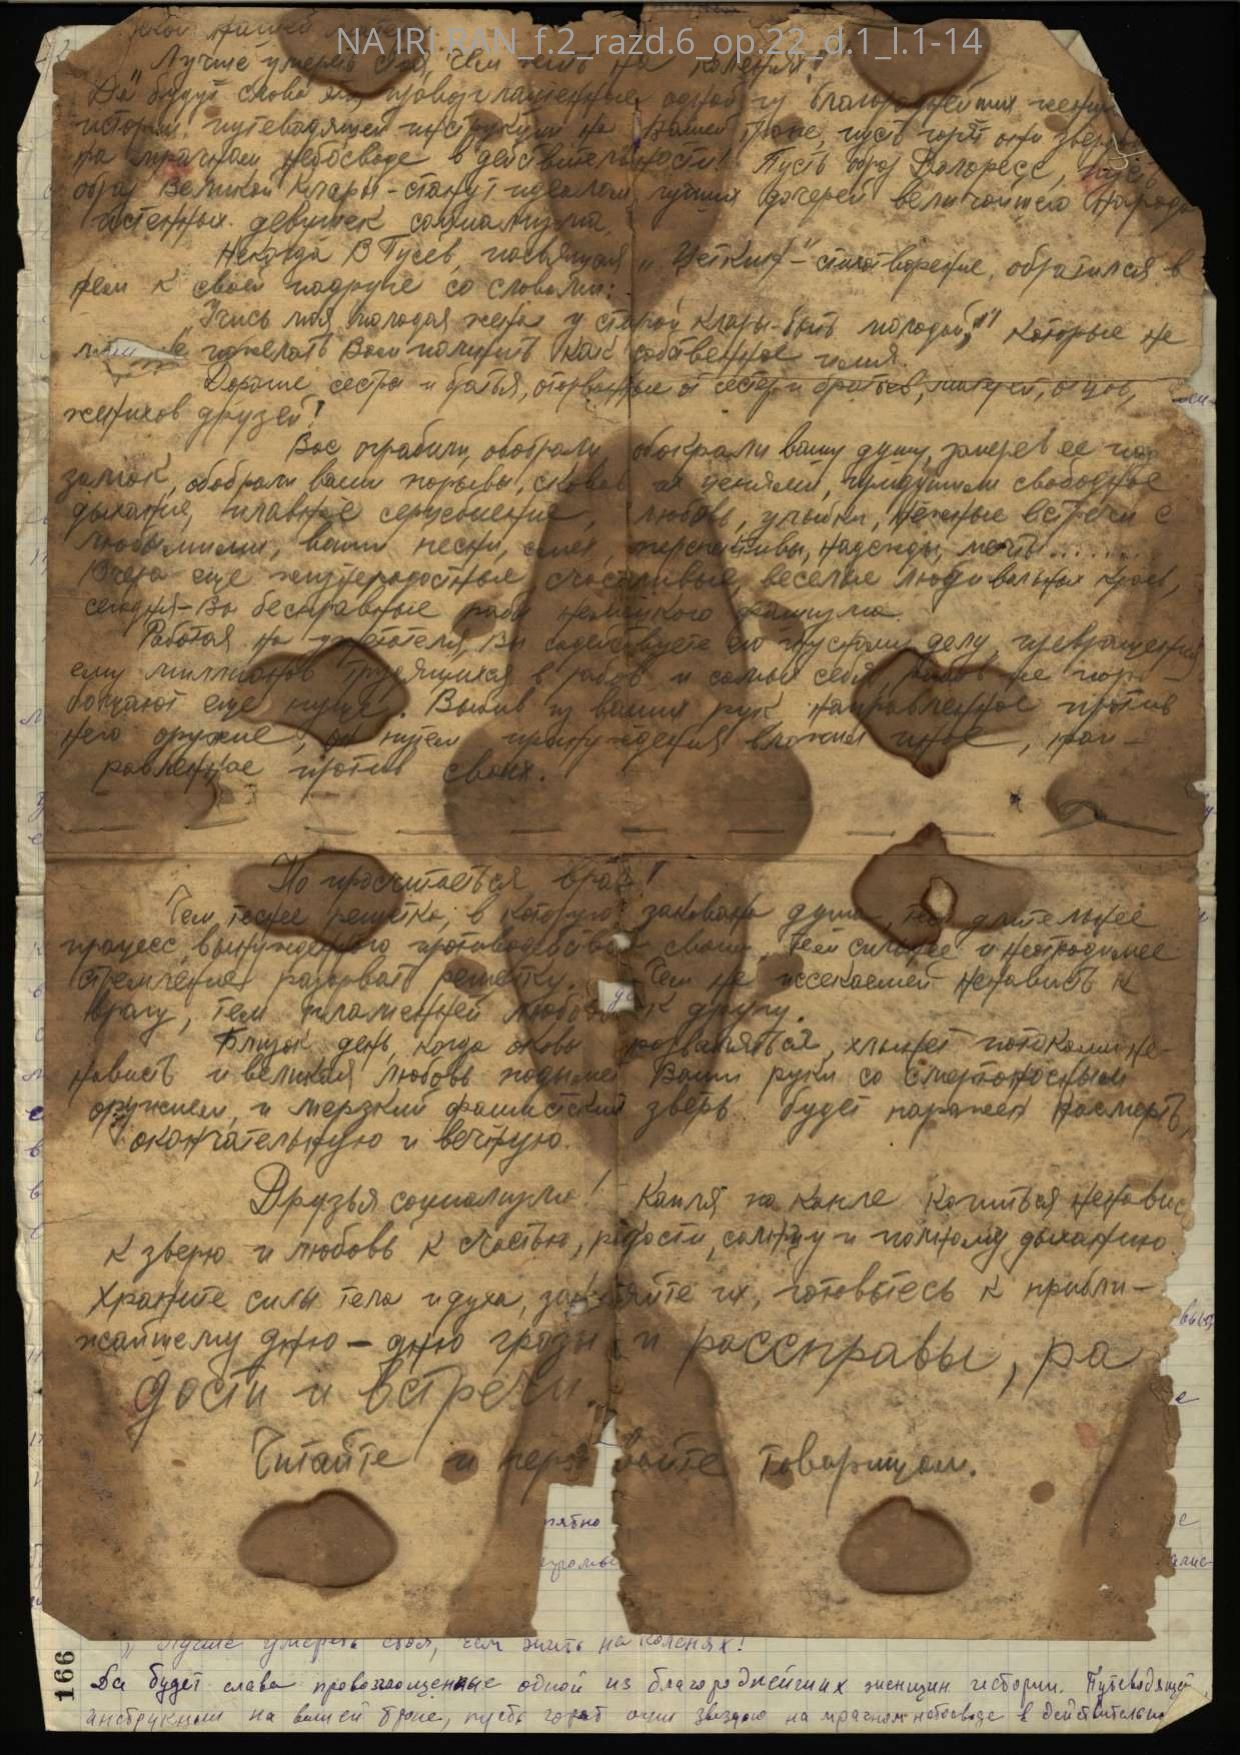 NA IRI RAN_f.2_razd.6_op.22_d.1_l.1-14
Лучше умереть стоя, чем жить на коленях!
Да будут слова эти, провозглашенные одной из благороднейших женщин
истории путеводящей инструкцией на Вашей тропе, пусть горят они звездою
на мрачном небосводе в действительности! Пусть образ Долорес, пусть
образ Великой Клары - станут идеалом лучших дочерей величайшего народа
истенных девушек социализма.
Некогда В Гусев, посвящая „Цеткин"- стихотворение, обратился в
нем к своей подруге со словами:
„Учись моя молодая жена у старой Клары-быть молодой," которые не
пожелать Вам помнить как собственное имя.
Дорогие сестры и братья, оторванные от сестер и братьев, матерей, отцов,
женихов друзей!
Вас ограбили, обобрали, обокрали вашу душу, заперев ее под
замок, обобрали ваши порывы, сковав их цепями, придушили свободное
дыхание, плавное серцебиение, любовь, улыбки, нежные встречи с
любимыми, ваши песни, смех, перспективы, надежды, мечты.......
Вчера еще жизнерадостные, счастливые, веселые люди вольных краев,
сегодня-Вы бесправные рабы немецкого фашизма.
Работая на угнетателя, Вы содействуете его гнусному делу, превращения
ему миллионов трудящихся в рабов и самые себя, рабов же пора-
бощают еще пуще. Выбив из ваших рук направленное против
него оружие, он путем принуждения вложил иное, нап-
равленное против своих.
Но просчитаеться враг!
Чем теснее решетка, в которую закована душа, чем длительнее
процесс вынужденного противодействия своим, тем сильнее и необходимее
стремление разорвать решетку. Чем не иссекаемей ненависть к
врагу, тем пламенней любовь к другу.
Близок день, когда оковы развалятся, хлынет потоками не-
нависть и великая любовь подымет Ваши руки со смертоносным
оружием, и мерзкий фашистский зверь будет поражен насмерть,
окончательную и вечную.
Друзья социализма! Капля по капле копиться ненавис
к зверю и любовь к счастью, радости, солнцу и полному дыханию
Храните силы тела и духа, закаляйте их, готовьтесь к прибли-
жайшему дню - дню грозы и рассправы, ра
дости и встречи.
Читайте и передавайте товарищам.
„Лучше умереть стоя, чем жить на коленях!
166
Да будет слава провозглощенные одной из благороднейших женщин истории. Путеводящей
инструкции на вашей тропе, пусть горят они звездою на мрачном небосводе в действительно